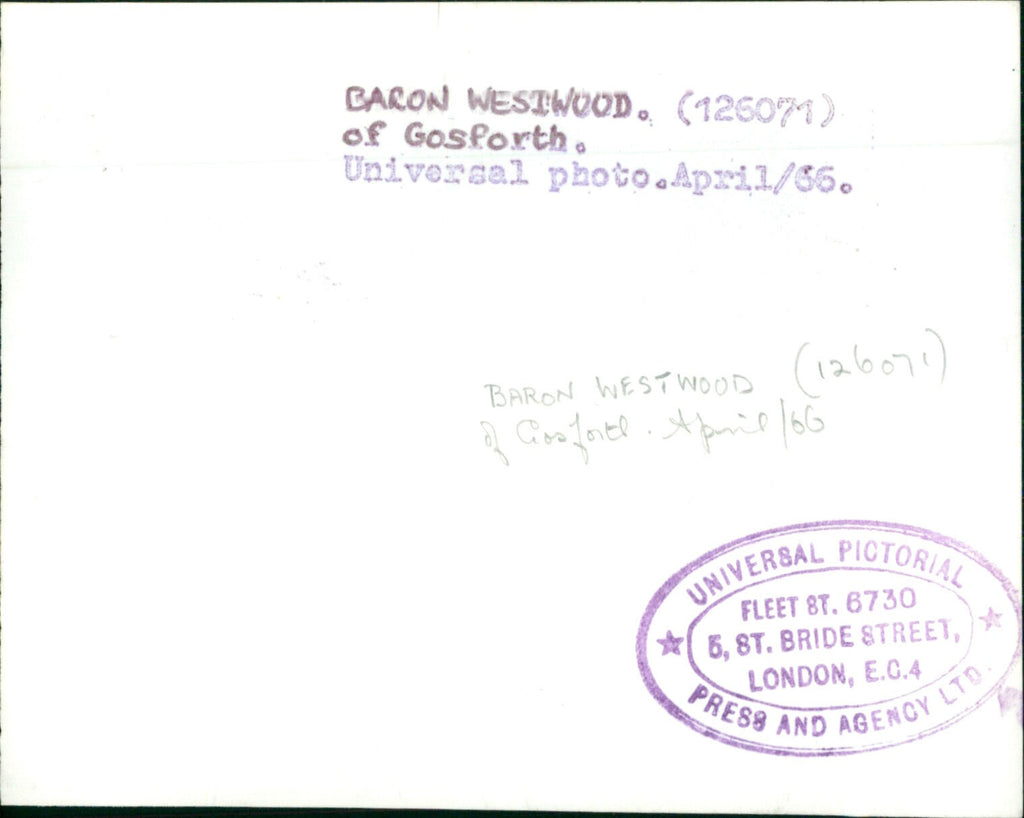 BARON WESTWOOD. (126071)
of Gosforth.
Universal photo.April/66.
BARON WESTWOOD (126071)
of Gosforth. April/66
UNIVERSAL PICTORIAL
FLEET ST. 6730
5, ST. BRIDE STREET,
LONDON, E.C.4
PRESS AND AGENCY LTD.